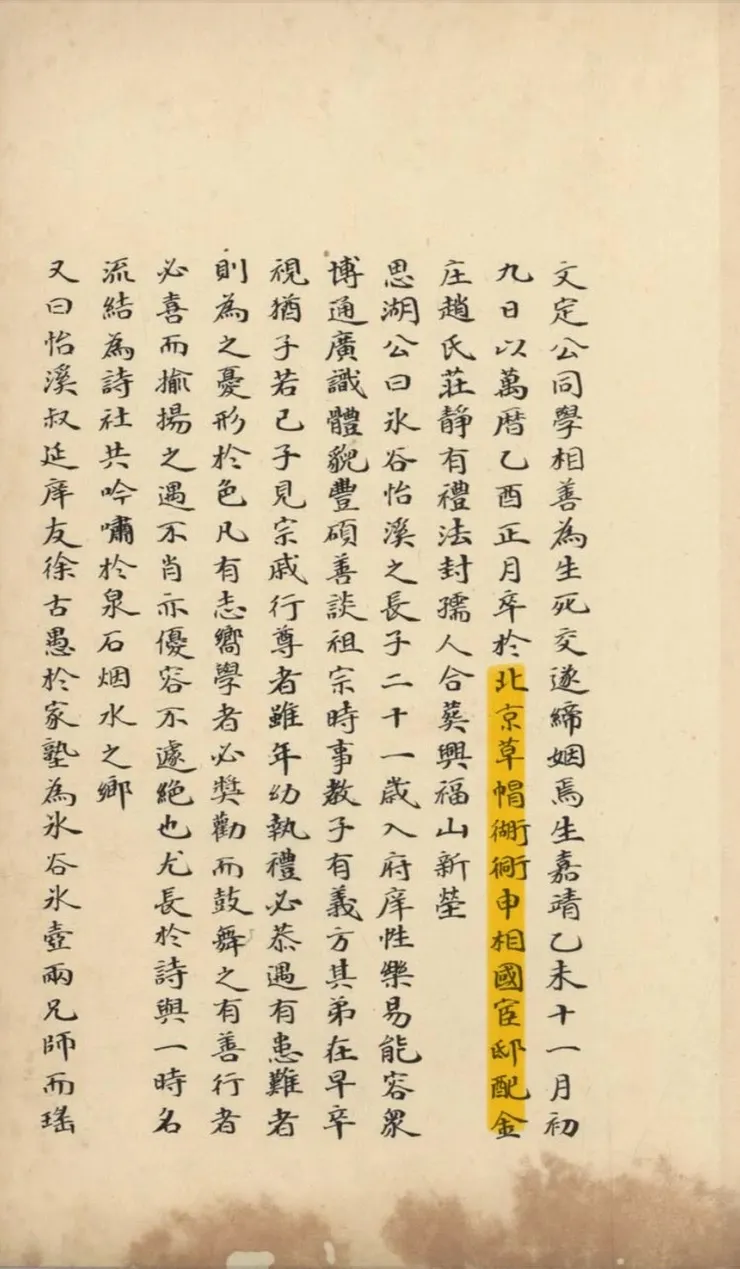 文定公同學相善為生死交遂締姻焉生嘉靖乙未十一月初
九日以萬曆乙酉正月卒於北京草帽衚衕申相國宦邸配金
庄趙氏莊靜有禮法封孺人合葬興福山新塋
思湖公曰氷谷怡溪之長子二十一歲入府庠性樂易能容眾
博通廣識體貌豐碩善談祖宗時事教子有義方其弟在早卒
視猶子若己子見宗戚行尊者雖年幼執禮必恭遇有患難者
則為之憂形於色凡有志嚮學者必獎勸而鼓舞之有善行者
必喜而揄揚之遇不肖亦優容不遽絕也尤長於詩與一時名
流結為詩社共吟嘯於泉石烟水之鄉
又曰怡溪叔延庠友徐古愚於家塾為氷谷氷壺兩兄師而瑤